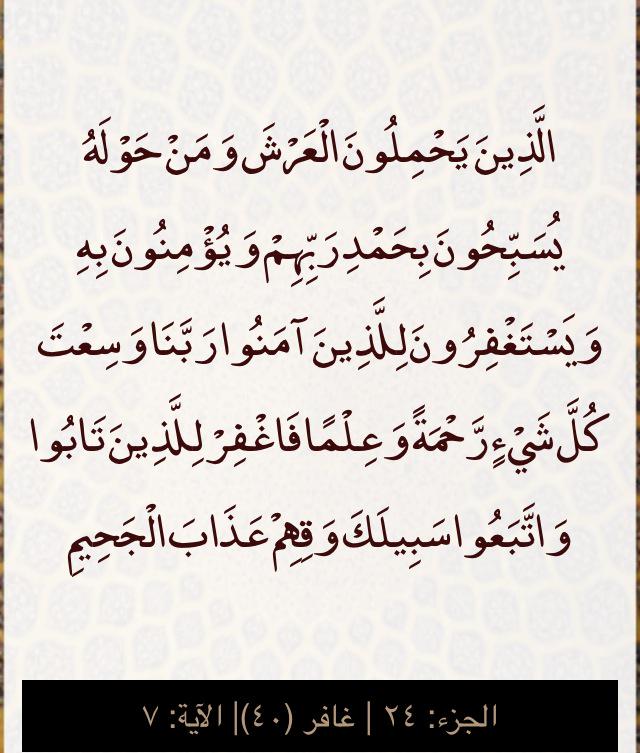 الَّذِينَ يَحْمِلُونَ الْعَرْشَ وَ مَنْ حَوْلَهُ
يُسَبِّحُونَ بِحَمْدِ رَبِّهِمْ وَ يُؤْمِنُونَ بِهِ
وَ يَسْتَغْفِرُونَ لِلَّذِينَ آمَنُوا رَبَّنَا وَسِعْتَ
كُلَّ شَيْءٍ رَّحْمَةً وَ عِلْمًا فَاغْفِرْ لِلَّذِينَ تَابُوا
وَ اتَّبَعُوا سَبِيلَكَ وَ قِهِمْ عَذَابَ الْجَحِيمِ
الجزء: ٢٤ | غافر (٤٠)| الآية: ٧